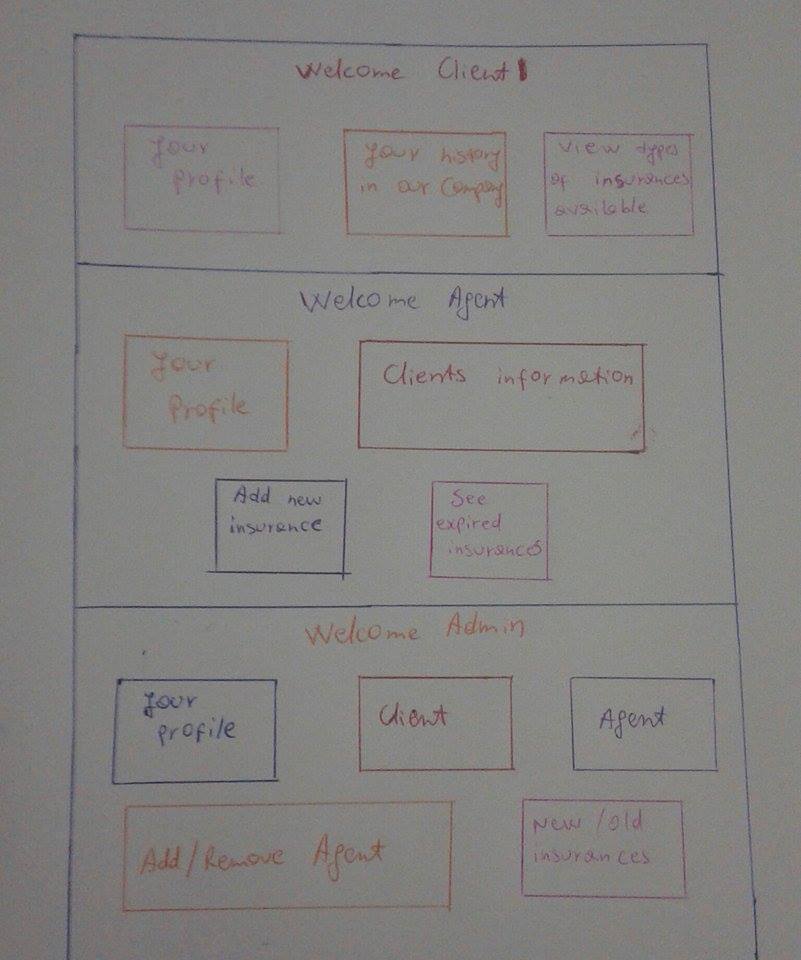 Welcome Client
Your
profile
Your history
in our Company
View types
of insurances
available
Welcome Agent
Your
Profile
Clients information
Add new
insurance
See
expired
insurances
Welcome Admin
Your
profile
Client
Agent
Add/Remove Agent
New/old
insurances